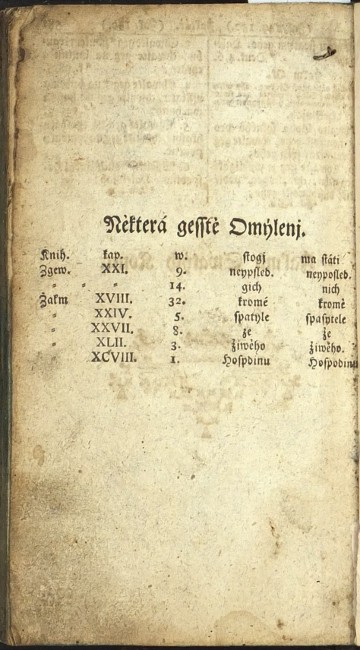 Některá gesstě Omýlenj.
Knih. kap. w. stogj ma státi
Zgew. XXI. 9. neypsled. neyposled.
" " " 14. gich nich
Žalm XVIII. 32. kromé kromě
" XXIV. 5. spatyle spasytele
" XXVII. 8. že že
" XLII. 3. žiwého žiwého.
" XCVIII. 1. Hospdinu Hospodinu